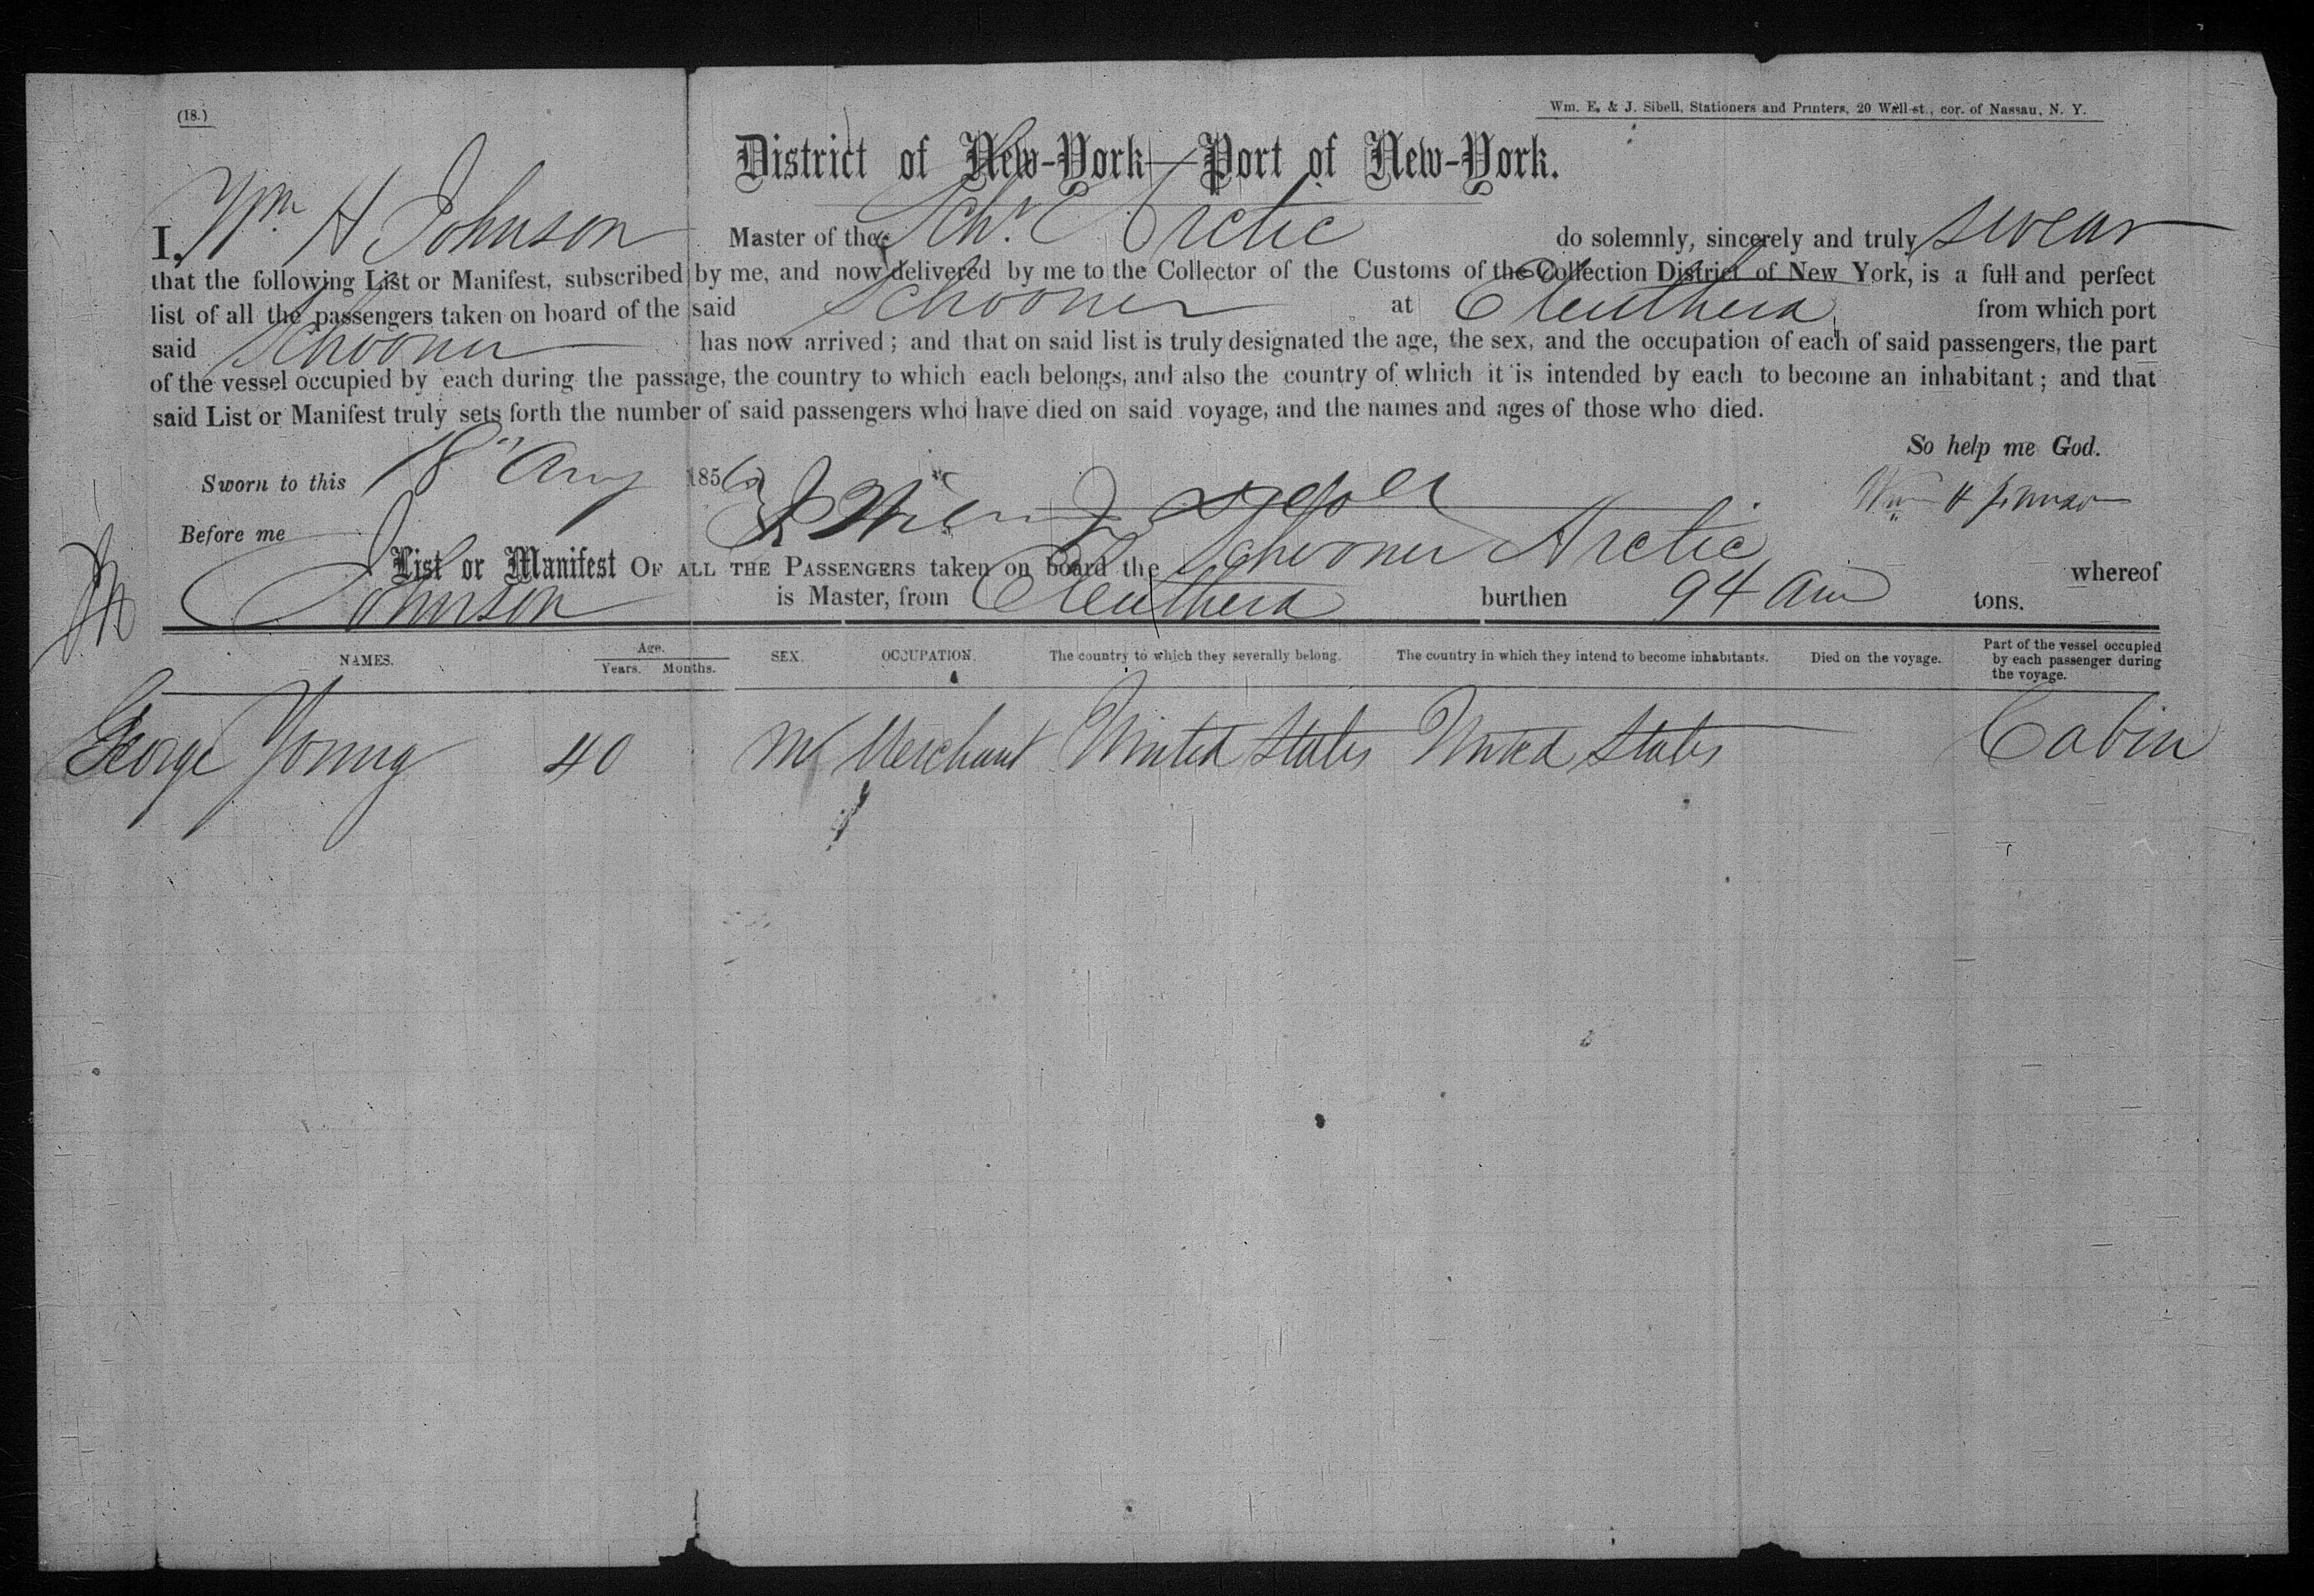 (18.)
Wm. E. & J. Sibell, Stationers and Printers, 20 Wall-st., cor. of Nassau, N. Y.
District of New-York—Port of New-York.
I, Wm H Johnson Master of the Schr Arctic do solemnly, sincerely and truly swear
that the following List or Manifest, subscribed by me, and now delivered by me to the Collector of the Customs of the Collection District of New York, is a full and perfect
list of all the passengers taken on board of the said Schooner at Eleuthera from which port
said Schooner has now arrived; and that on said list is truly designated the age, the sex, and the occupation of each of said passengers, the part
of the vessel occupied by each during the passage, the country to which each belongs, and also the country of which it is intended by each to become an inhabitant; and that
said List or Manifest truly sets forth the number of said passengers who have died on said voyage, and the names and ages of those who died.
So help me God.
Sworn to this 18th Aug 1856
Wm H Johnson
Before me
List or Manifest OF ALL THE PASSENGERS taken on board the Schooner Arctic whereof
Johnson is Master, from Eleuthera burthen 94 tons.
NAMES. Age. Years. Months. SEX. OCCUPATION. The country to which they severally belong. The country in which they intend to become inhabitants. Died on the voyage. Part of the vessel occupied by each passenger during the voyage.
George Young 40 M Merchant United States United States Cabin